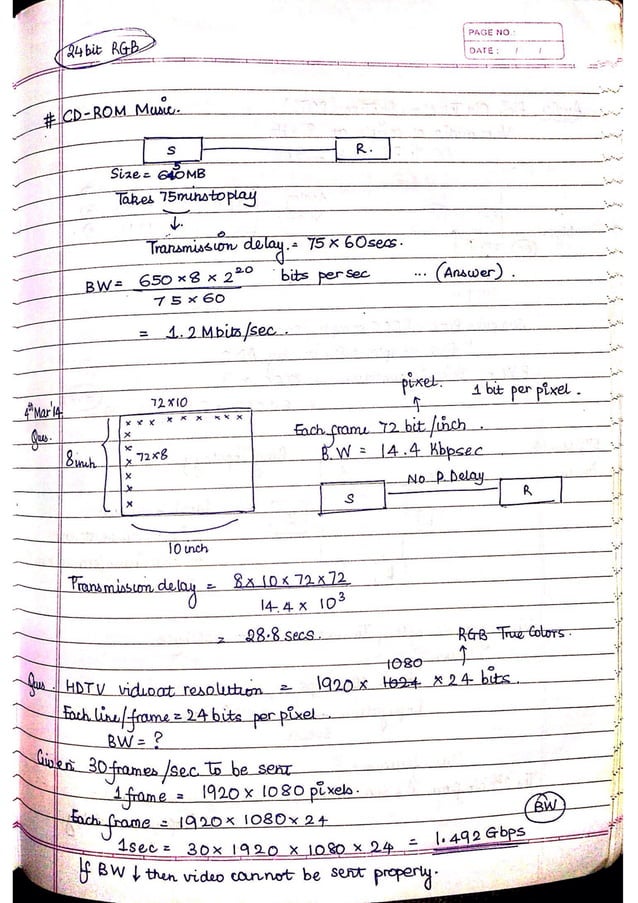 24 bit RGB
PAGE NO.:
DATE: / /
# CD-ROM Music.
S R.
Size = 650MB
Takes 75 mins to play
↓.
Transmission delay. = 75 × 60 secs.
BW = 650 × 8 × 2^20 / 75 × 60 bits per sec ... (Answer).
= 1.2 Mbits/sec.
4th Mar'14
Ques.
72×10
pixel. 1 bit per pixel.
↑
x x x x x x x x x
Each frame 72 bit/inch.
8 inch 72×8
B.W = 14.4 Kbpsec
No P. Delay
S R
10 inch
Transmission delay = 8 × 10 × 72 × 72 / 14.4 × 10^3
= 28.8 secs.
RGB True Colors.
↑
Ques. HDTV video at resolution = 1920 × 1080 × 24 bits.
Each line/frame = 24 bits per pixel.
BW = ?
Given 30 frames/sec to be sent
1 frame = 1920 × 1080 pixels.
Each frame = 1920 × 1080 × 24
BW
1 sec = 30 × 1920 × 1080 × 24 = 1.492 Gbps
If BW ↓ then video cannot be sent properly.